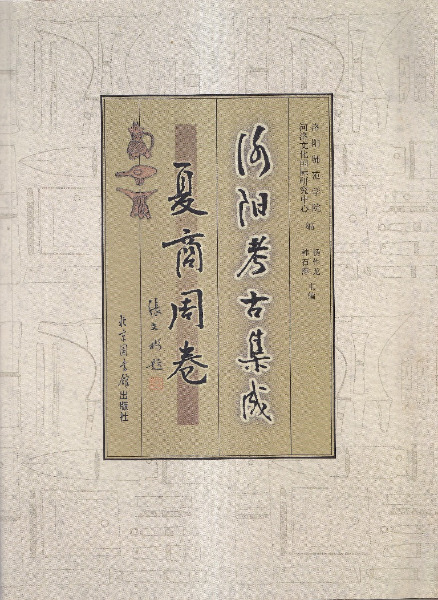 洛阳师范学院
河洛文化国际研究中心 编
杨作龙
韩石萍 主编
洛阳考古集成
夏商周卷
张文彬题
北京图书馆出版社